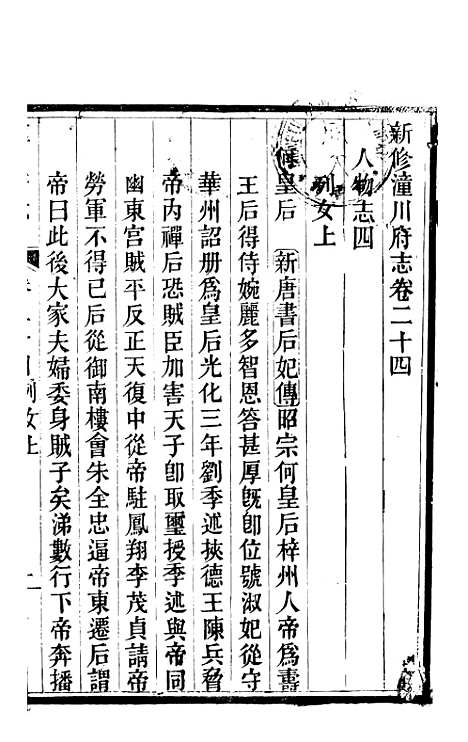 新修潼川府志卷二十四
人物志四
列女上
何皇后 新唐書后妃傳昭宗何皇后梓州人帝爲壽
王后得侍婉麗多智恩答甚厚旣卽位號淑妃從守
華州詔册爲皇后光化三年劉季述挾德王陳兵脅
帝內禪后恐賊臣加害天子卽取璽授季述與帝同
幽東宮賊平反正天復中從帝駐鳳翔李茂貞請帝
勞軍不得已后從御南樓會朱全忠逼帝東遷后謂
帝曰此後大家夫婦委身賊子矣涕數行下帝奔播
列女上